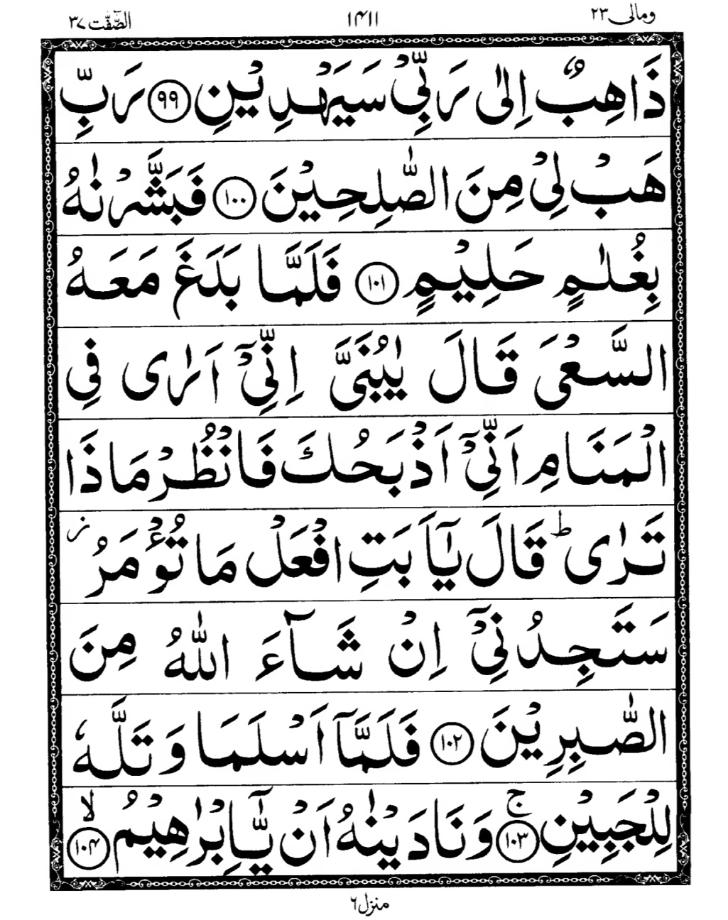 ومالی ۲۳ ۱۴۱۱ الصّٰٓفّٰت ۳۷
ذَاهِبٌ اِلٰى رَبِّىْ سَيَهْدِيْنِ ﴿۹۹﴾ رَبِّ
هَبْ لِىْ مِنَ الصّٰلِحِيْنَ ﴿۱۰۰﴾ فَبَشَّرْنٰهُ
بِغُلٰمٍ حَلِيْمٍ ﴿۱۰۱﴾ فَلَمَّا بَلَغَ مَعَهُ
السَّعْىَ قَالَ يٰبُنَىَّ اِنِّىْۤ اَرٰى فِى
الْمَنَامِ اَنِّىْۤ اَذْبَحُكَ فَانْظُرْ مَاذَا
تَرٰى ؕ قَالَ يٰۤاَبَتِ افْعَلْ مَا تُؤْمَرُ ز
سَتَجِدُنِىْۤ اِنْ شَآءَ اللّٰهُ مِنَ
الصّٰبِرِيْنَ ﴿۱۰۲﴾ فَلَمَّاۤ اَسْلَمَا وَ تَلَّهٗ
لِلْجَبِيْنِ ۚ ﴿۱۰۳﴾ وَنَادَيْنٰهُ اَنْ يّٰۤاِبْرٰهِيْمُ ۙ ﴿۱۰۴﴾
منزل ۶